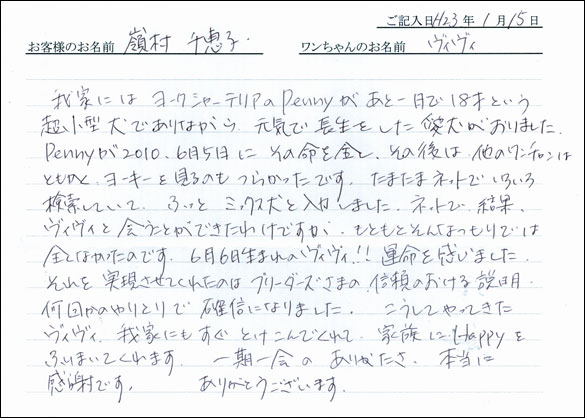 ご記入日H23年1月15日
お客様のお名前 嶺村 千恵子 ワンちゃんのお名前 ヴィヴィ
我家には ヨークシャーテリアのPennyがあと一日で18才という
超小型犬でありながら、元気で長生をした愛犬がおりました。
Pennyが2010.6月5日に その命を全し、その後は 他のワンチャンは
ともかく、ヨーキーを見るのもつらかったです。たまたまネットでいろいろ
検索していて、ふっと ミックス犬と入力しました。ネットで、結果、
ヴィヴィと会うことができたわけですが、もともとそんなつもりでは
全くなかったのです。6月6日生まれのヴィヴィ!! 運命を感じました。
それを実現させてくれたのは ブリーダーズさまの信頼のおける説明
何回かのやりとりで 確信になりました。 こうしてやってきた
ヴィヴィ、我家にもすぐとけこんでくれて、家族にHappyを
ふりまいてくれます。 一期一会の ありがたさ、本当に
感謝です。 ありがとうございます。